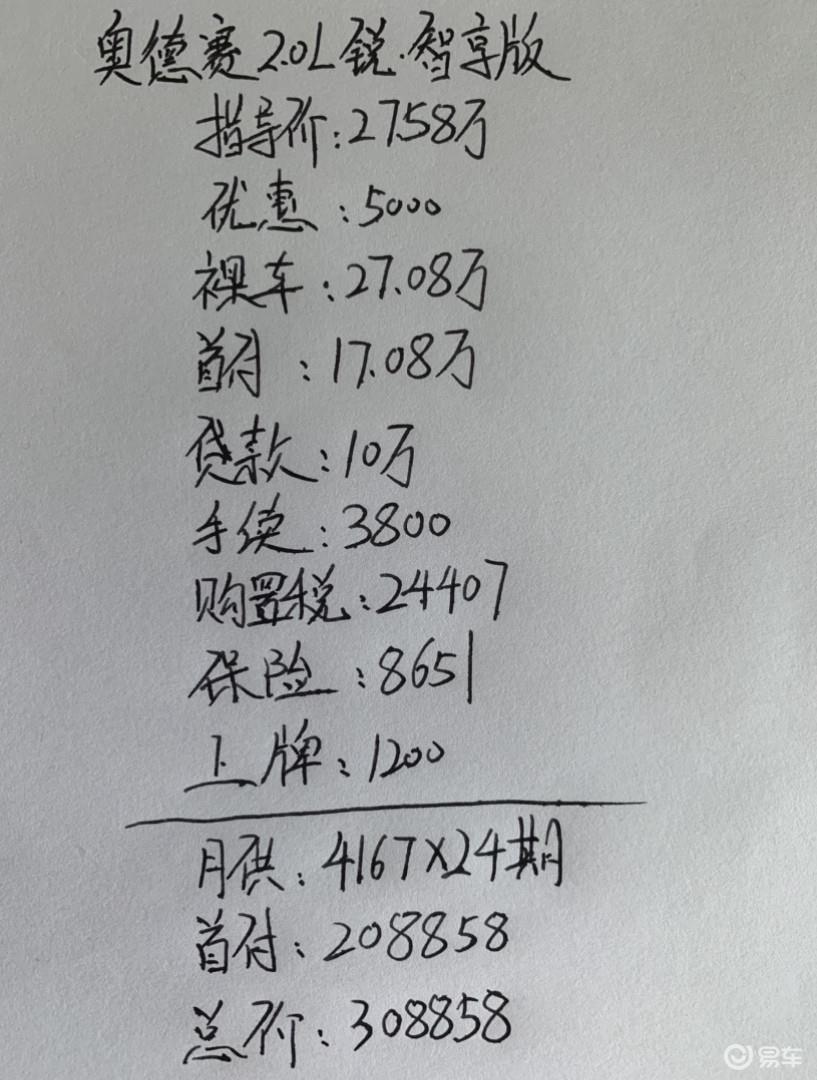 奥德赛2.0L锐·智享版
指导价:27.58万
优惠:5000
裸车:27.08万
首付:17.08万
贷款:10万
手续:3800
购置税:24407
保险:8651
上牌:1200
月供:4167×24期
首付:208858
总价:308858
易车